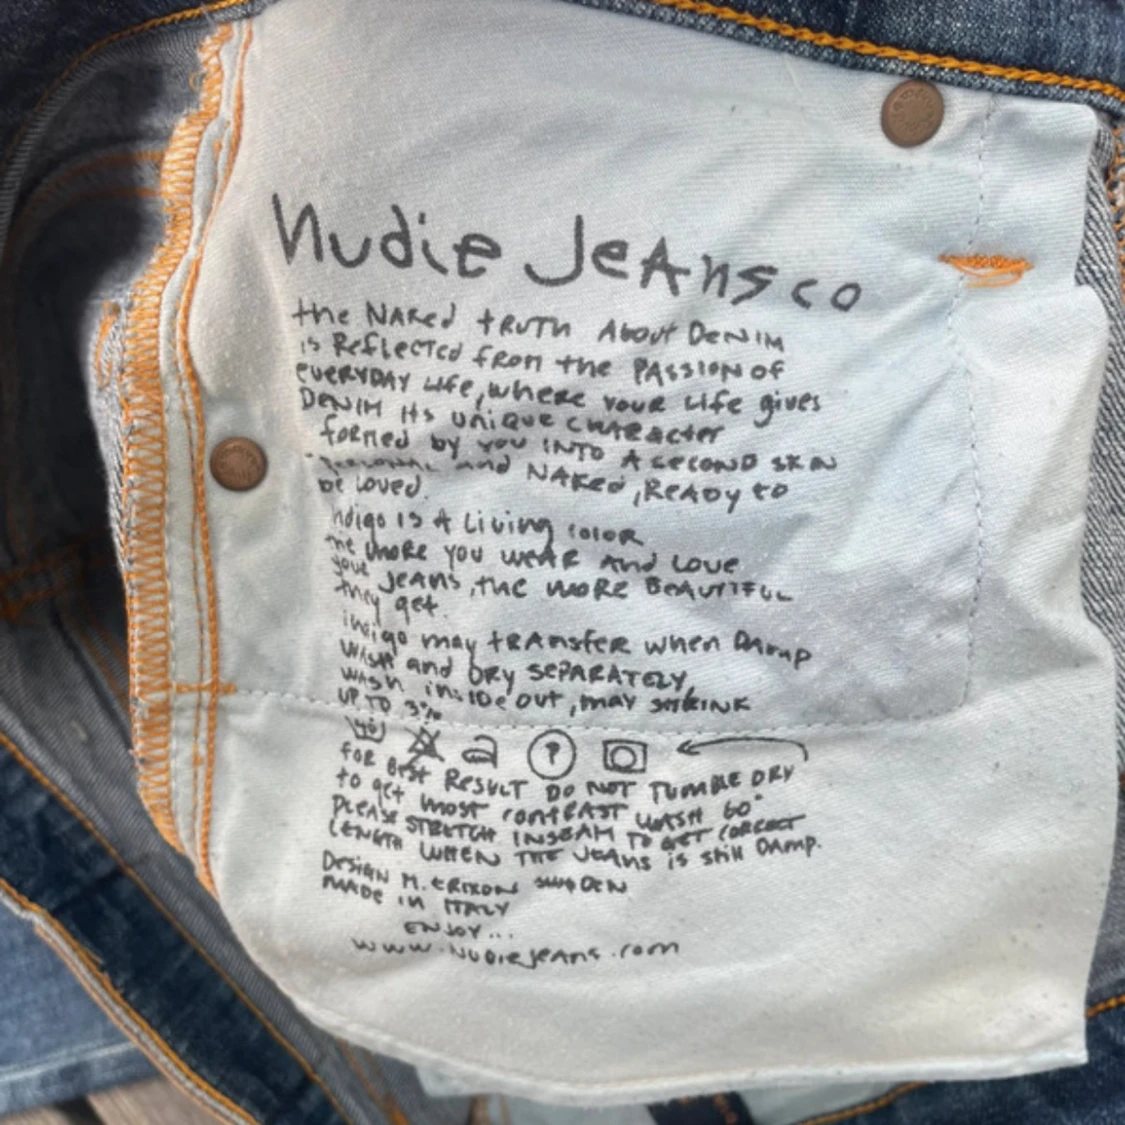 Nudie Jeans co
the NAKed tRUTH About DeNIM
is ReflecTed from the PASSION of
eveRYDAY Life, where your Life gives
DENIM its unique CHARACter
formed by you INTO A SECOND SKIN
personal and NAKed, ReADy to
be loved.
indigo is A living color
the more you weAR And Love
your JeANs, the more BeAUTIFUL
they get.
indigo may tRAnsfer when DAmp
WASH and DRY SEPARATELY,
WASH inside out, may SHRINK
UP TO 3%
FOR BEST RESULT DO NOT TUMBLE DRY
to get most contRAST WASH 60°
PLEASE STRETCH INSEAM TO GET CORRECT
LENGTH WHEN THE JEANS is still DAmp.
DESIGN M. ERIXON SWEDEN
MADE in ITALY
ENJOY...
www.NudieJeans.com